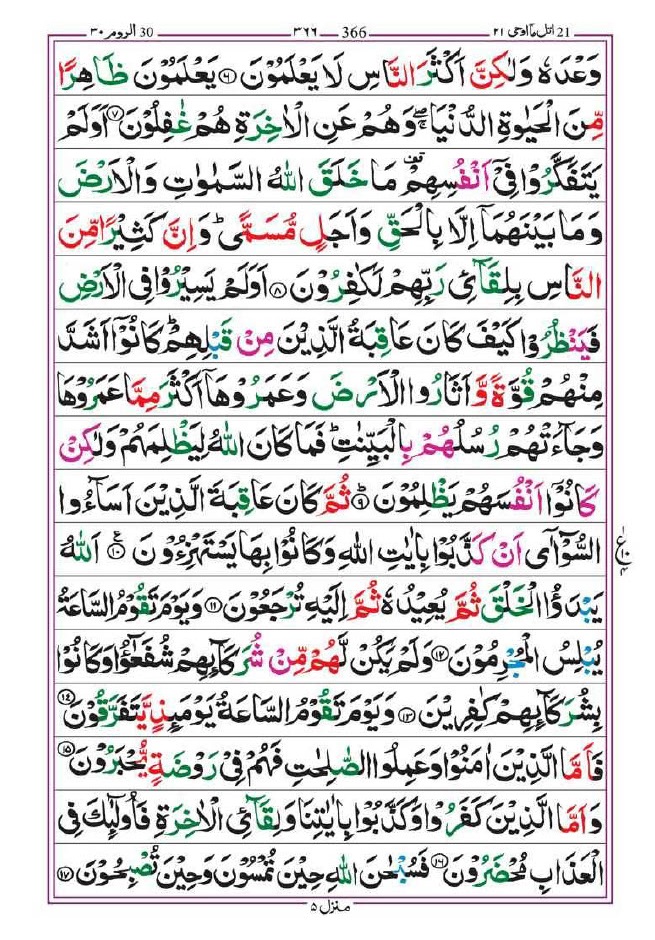 21 اتل ما اوحی ۲۱ 366 ۳۶۶ 30 الروم ۳۰
وَعْدَهٗ وَلٰكِنَّ اَكْثَرَ النَّاسِ لَا يَعْلَمُوْنَ ۶ يَعْلَمُوْنَ ظَاهِرًا
مِّنَ الْحَيٰوةِ الدُّنْيَا ۖۚ وَهُمْ عَنِ الْاٰخِرَةِ هُمْ غٰفِلُوْنَ ۷ اَوَلَمْ
يَتَفَكَّرُوْا فِيْۤ اَنْفُسِهِمْ ۫ مَا خَلَقَ اللّٰهُ السَّمٰوٰتِ وَالْاَرْضَ
وَمَا بَيْنَهُمَاۤ اِلَّا بِالْحَقِّ وَاَجَلٍ مُّسَمًّى ؕ وَاِنَّ كَثِيْرًا مِّنَ
النَّاسِ بِلِقَآئِ رَبِّهِمْ لَكٰفِرُوْنَ ۸ اَوَلَمْ يَسِيْرُوْا فِى الْاَرْضِ
فَيَنْظُرُوْا كَيْفَ كَانَ عَاقِبَةُ الَّذِيْنَ مِنْ قَبْلِهِمْ ؕ كَانُوْۤا اَشَدَّ
مِنْهُمْ قُوَّةً وَّاَثَارُوا الْاَرْضَ وَعَمَرُوْهَاۤ اَكْثَرَ مِمَّا عَمَرُوْهَا
وَجَآءَتْهُمْ رُسُلُهُمْ بِالْبَيِّنٰتِ ؕ فَمَا كَانَ اللّٰهُ لِيَظْلِمَهُمْ وَلٰكِنْ
كَانُوْۤا اَنْفُسَهُمْ يَظْلِمُوْنَ ؕ ۹ ثُمَّ كَانَ عَاقِبَةَ الَّذِيْنَ اَسَآءُوا
السُّوْٓاٰۤى اَنْ كَذَّبُوْا بِاٰيٰتِ اللّٰهِ وَكَانُوْا بِهَا يَسْتَهْزِءُوْنَ ۱۰ اَللّٰهُ
يَبْدَؤُا الْخَلْقَ ثُمَّ يُعِيْدُهٗ ثُمَّ اِلَيْهِ تُرْجَعُوْنَ ۱۱ وَيَوْمَ تَقُوْمُ السَّاعَةُ
يُبْلِسُ الْمُجْرِمُوْنَ ۱۲ وَلَمْ يَكُنْ لَّهُمْ مِّنْ شُرَكَآئِهِمْ شُفَعٰٓؤُا وَكَانُوْا
بِشُرَكَآئِهِمْ كٰفِرِيْنَ ۱۳ وَيَوْمَ تَقُوْمُ السَّاعَةُ يَوْمَئِذٍ يَّتَفَرَّقُوْنَ ۱۴
فَاَمَّا الَّذِيْنَ اٰمَنُوْا وَعَمِلُوا الصّٰلِحٰتِ فَهُمْ فِيْ رَوْضَةٍ يُّحْبَرُوْنَ ۱۵
وَاَمَّا الَّذِيْنَ كَفَرُوْا وَكَذَّبُوْا بِاٰيٰتِنَا وَلِقَآئِ الْاٰخِرَةِ فَاُولٰٓئِكَ فِى
الْعَذَابِ مُحْضَرُوْنَ ۱۶ فَسُبْحٰنَ اللّٰهِ حِيْنَ تُمْسُوْنَ وَحِيْنَ تُصْبِحُوْنَ ۱۷
منزل ۵